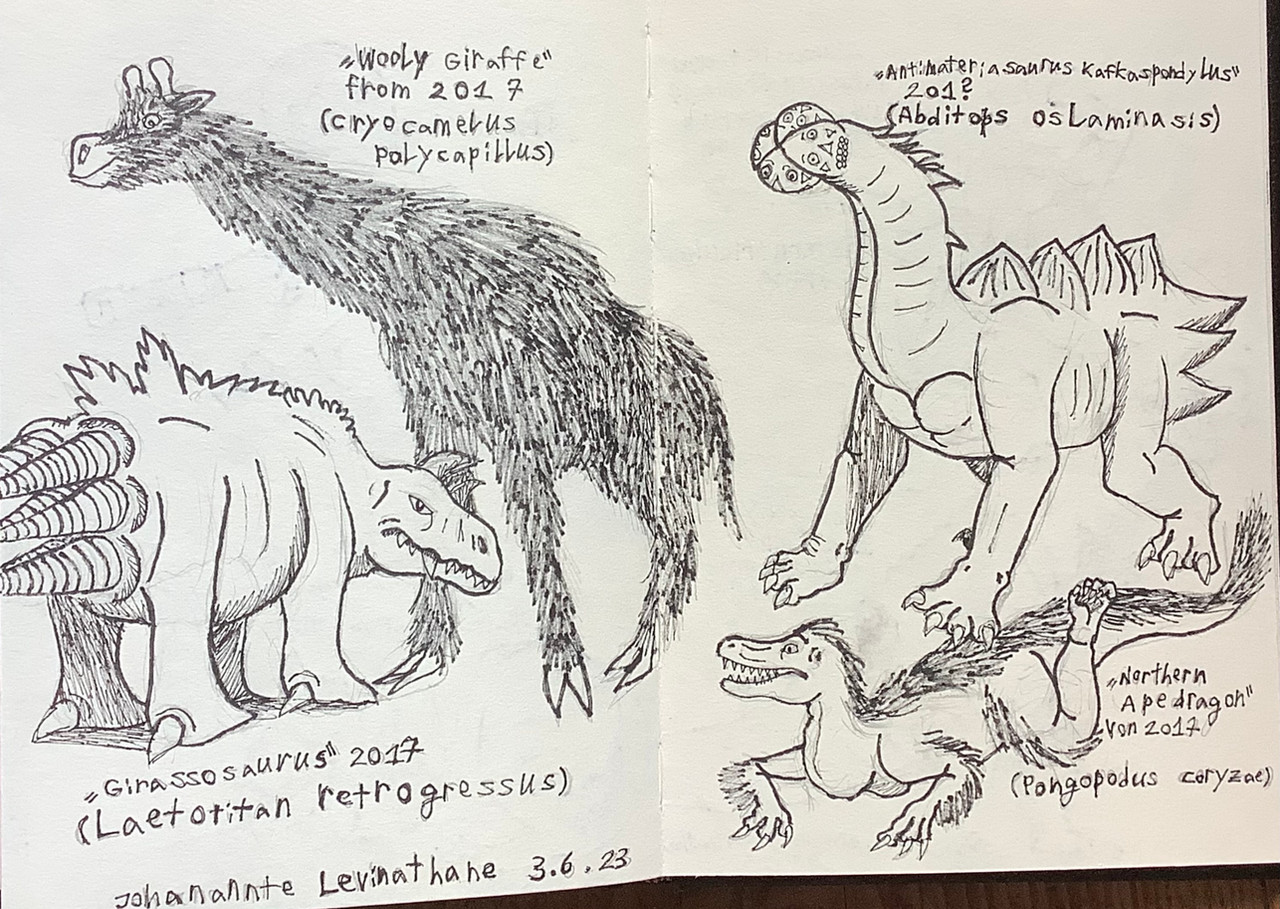 „Wooly Giraffe"
from 2017
(cryocamelus
polycapillus)
„Girassosaurus" 2017
(Laetotitan retrogressus)
Johanannte Levinathane 3.6.23
„Antimateriasaurus Kafkaspondylus"
201?
(Abditops osLaminasis)
„Northern
Apedragon"
von 2017
(Pongopodus coryzae)